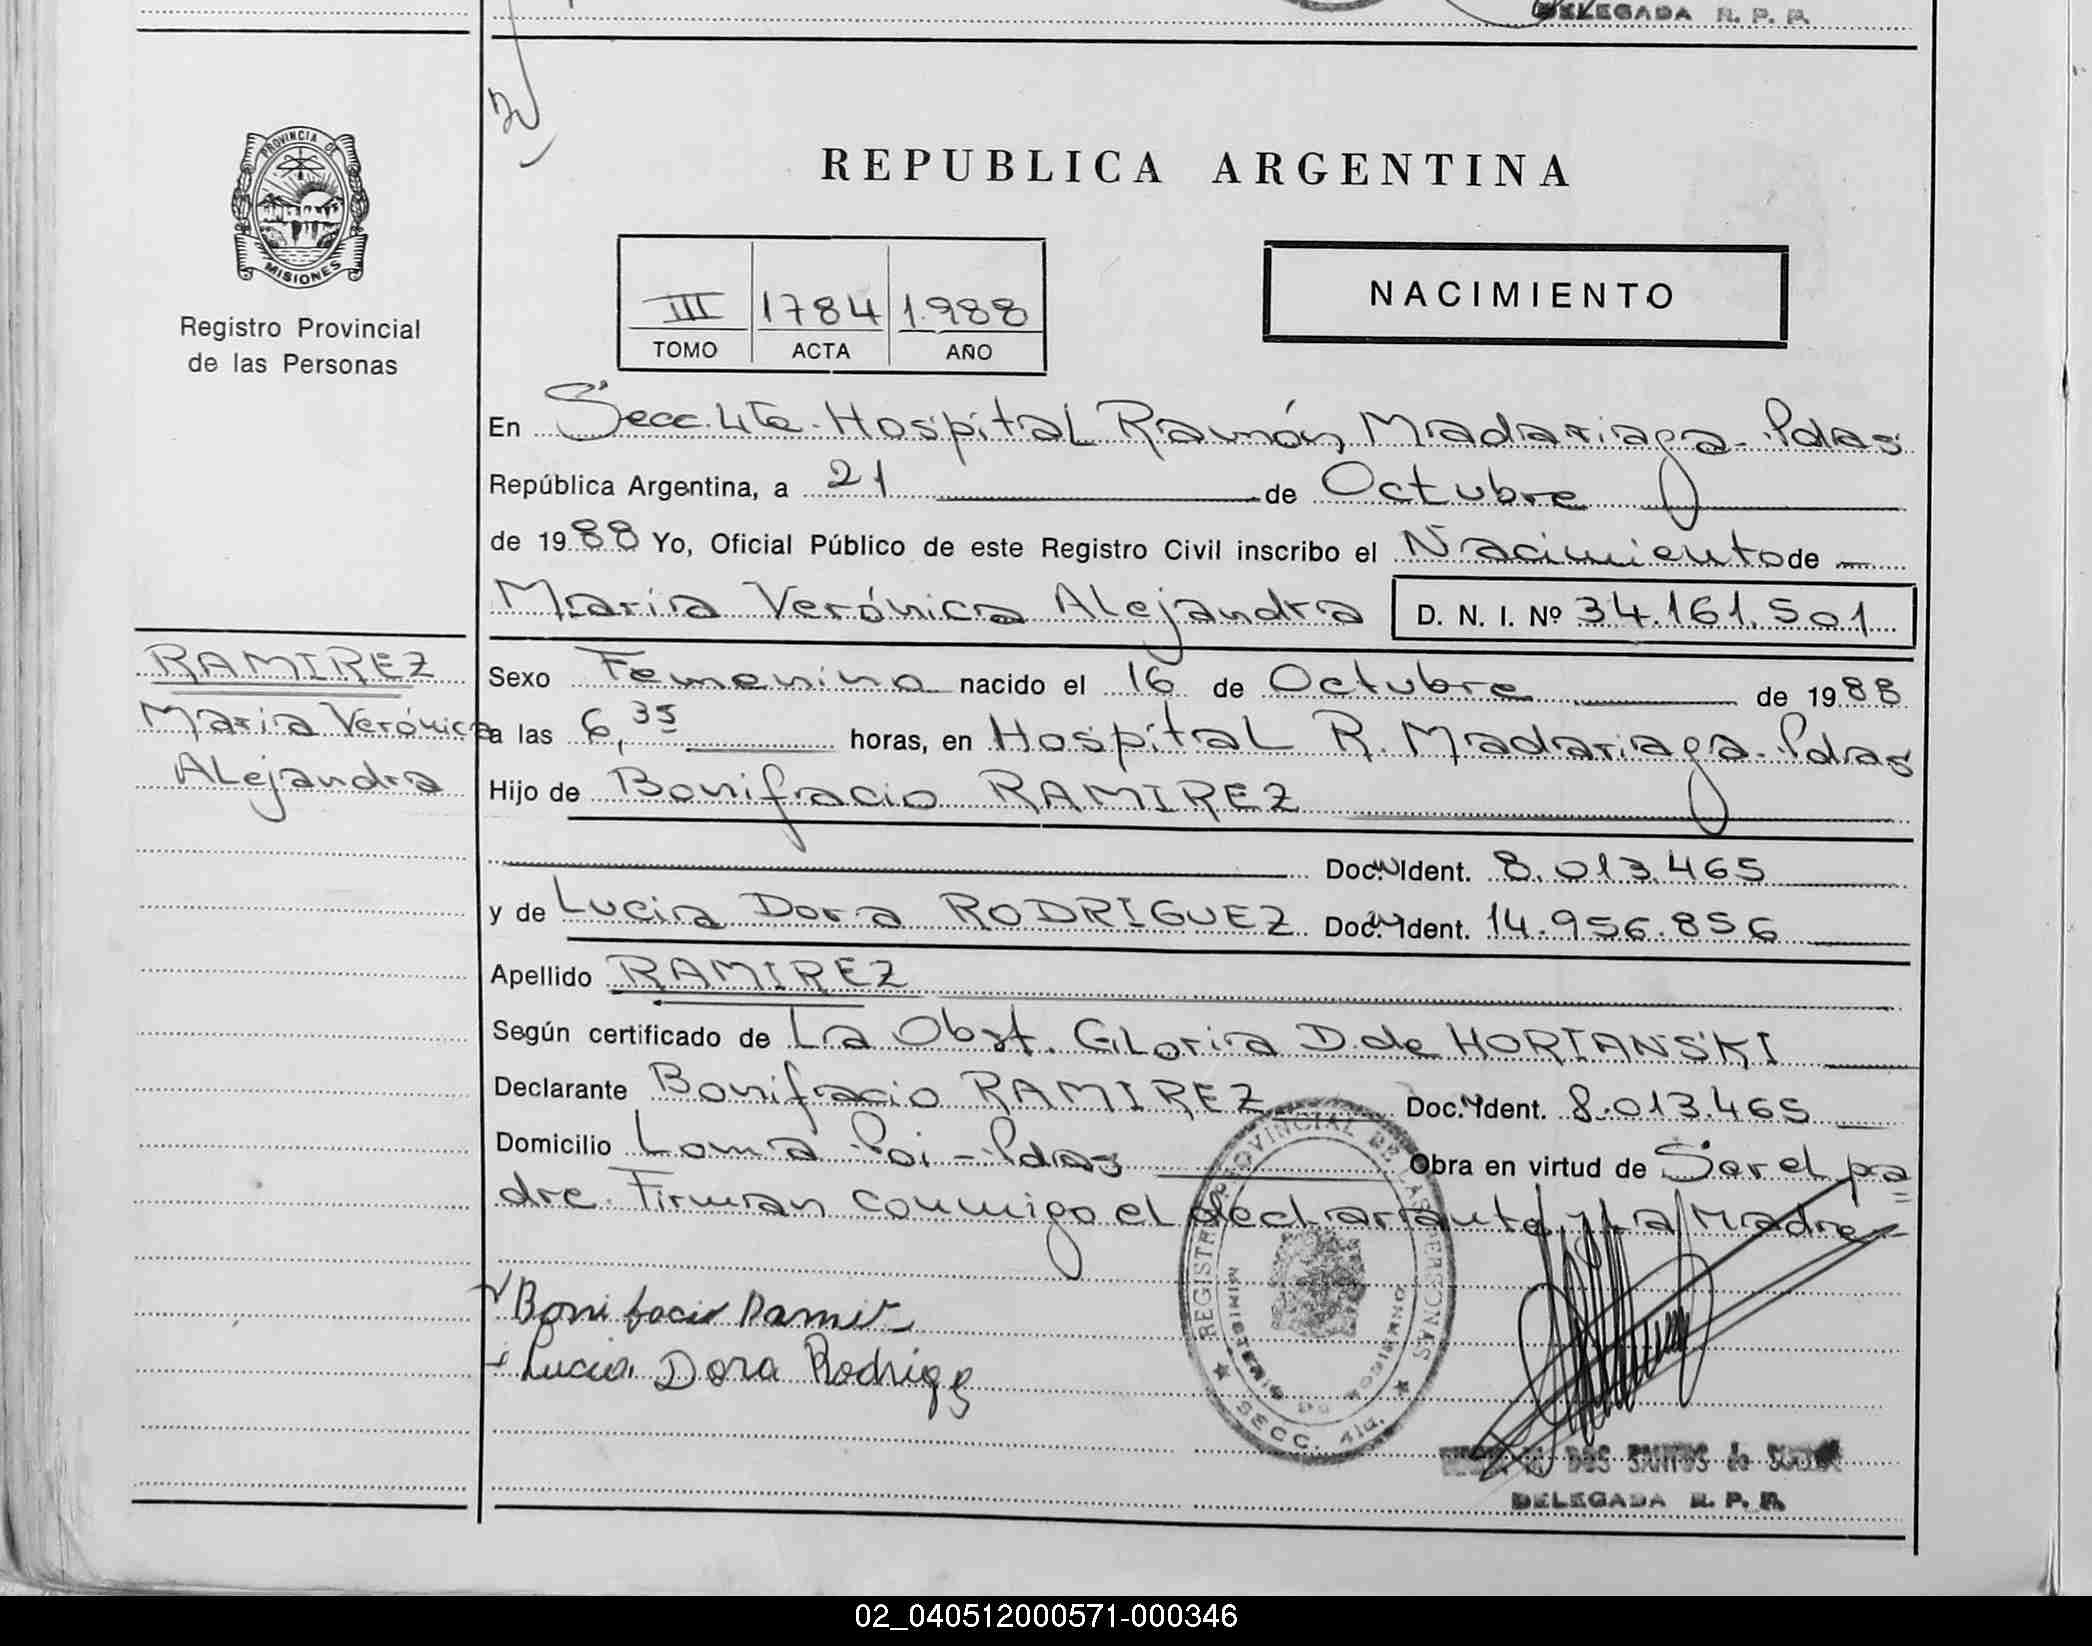 DELEGADA R. P. P.
PROVINCIA DE
MISIONES
Registro Provincial
de las Personas
REPUBLICA ARGENTINA
NACIMIENTO
III 1784 1.988
TOMO ACTA AÑO
En Secc. 4ta. Hospital Ramón Madariaga - Pdas
República Argentina, a 21 de Octubre
de 1988 Yo, Oficial Público de este Registro Civil inscribo el Nacimiento de
María Verónica Alejandra D. N. I. Nº 34.161.501
RAMIREZ
María Verónica
Alejandra
Sexo Femenino nacido el 16 de Octubre de 1988
a las 6,35 horas, en Hospital R. Madariaga - Pdas
Hijo de Bonifacio RAMIREZ
Doc. Ident. 8.013.465
y de Lucia Dora RODRIGUEZ Doc. Ident. 14.956.856
Apellido RAMIREZ
Según certificado de La Obst. Gloria D. de HORIANSKI
Declarante Bonifacio RAMIREZ Doc. Ident. 8.013.465
Domicilio Loma Poi - Pdas Obra en virtud de Ser el pa
dre. Firman conmigo el declarante y La Madre
Bonifacio Ramir
Lucia Dora Rodrigz
REGISTRO PROVINCIAL DE LAS PERSONAS
MINISTERIO DE GOBIERNO
SECC. 4ta.
DOS SANTOS de
DELEGADA R. P. P.
02_040512000571-000346